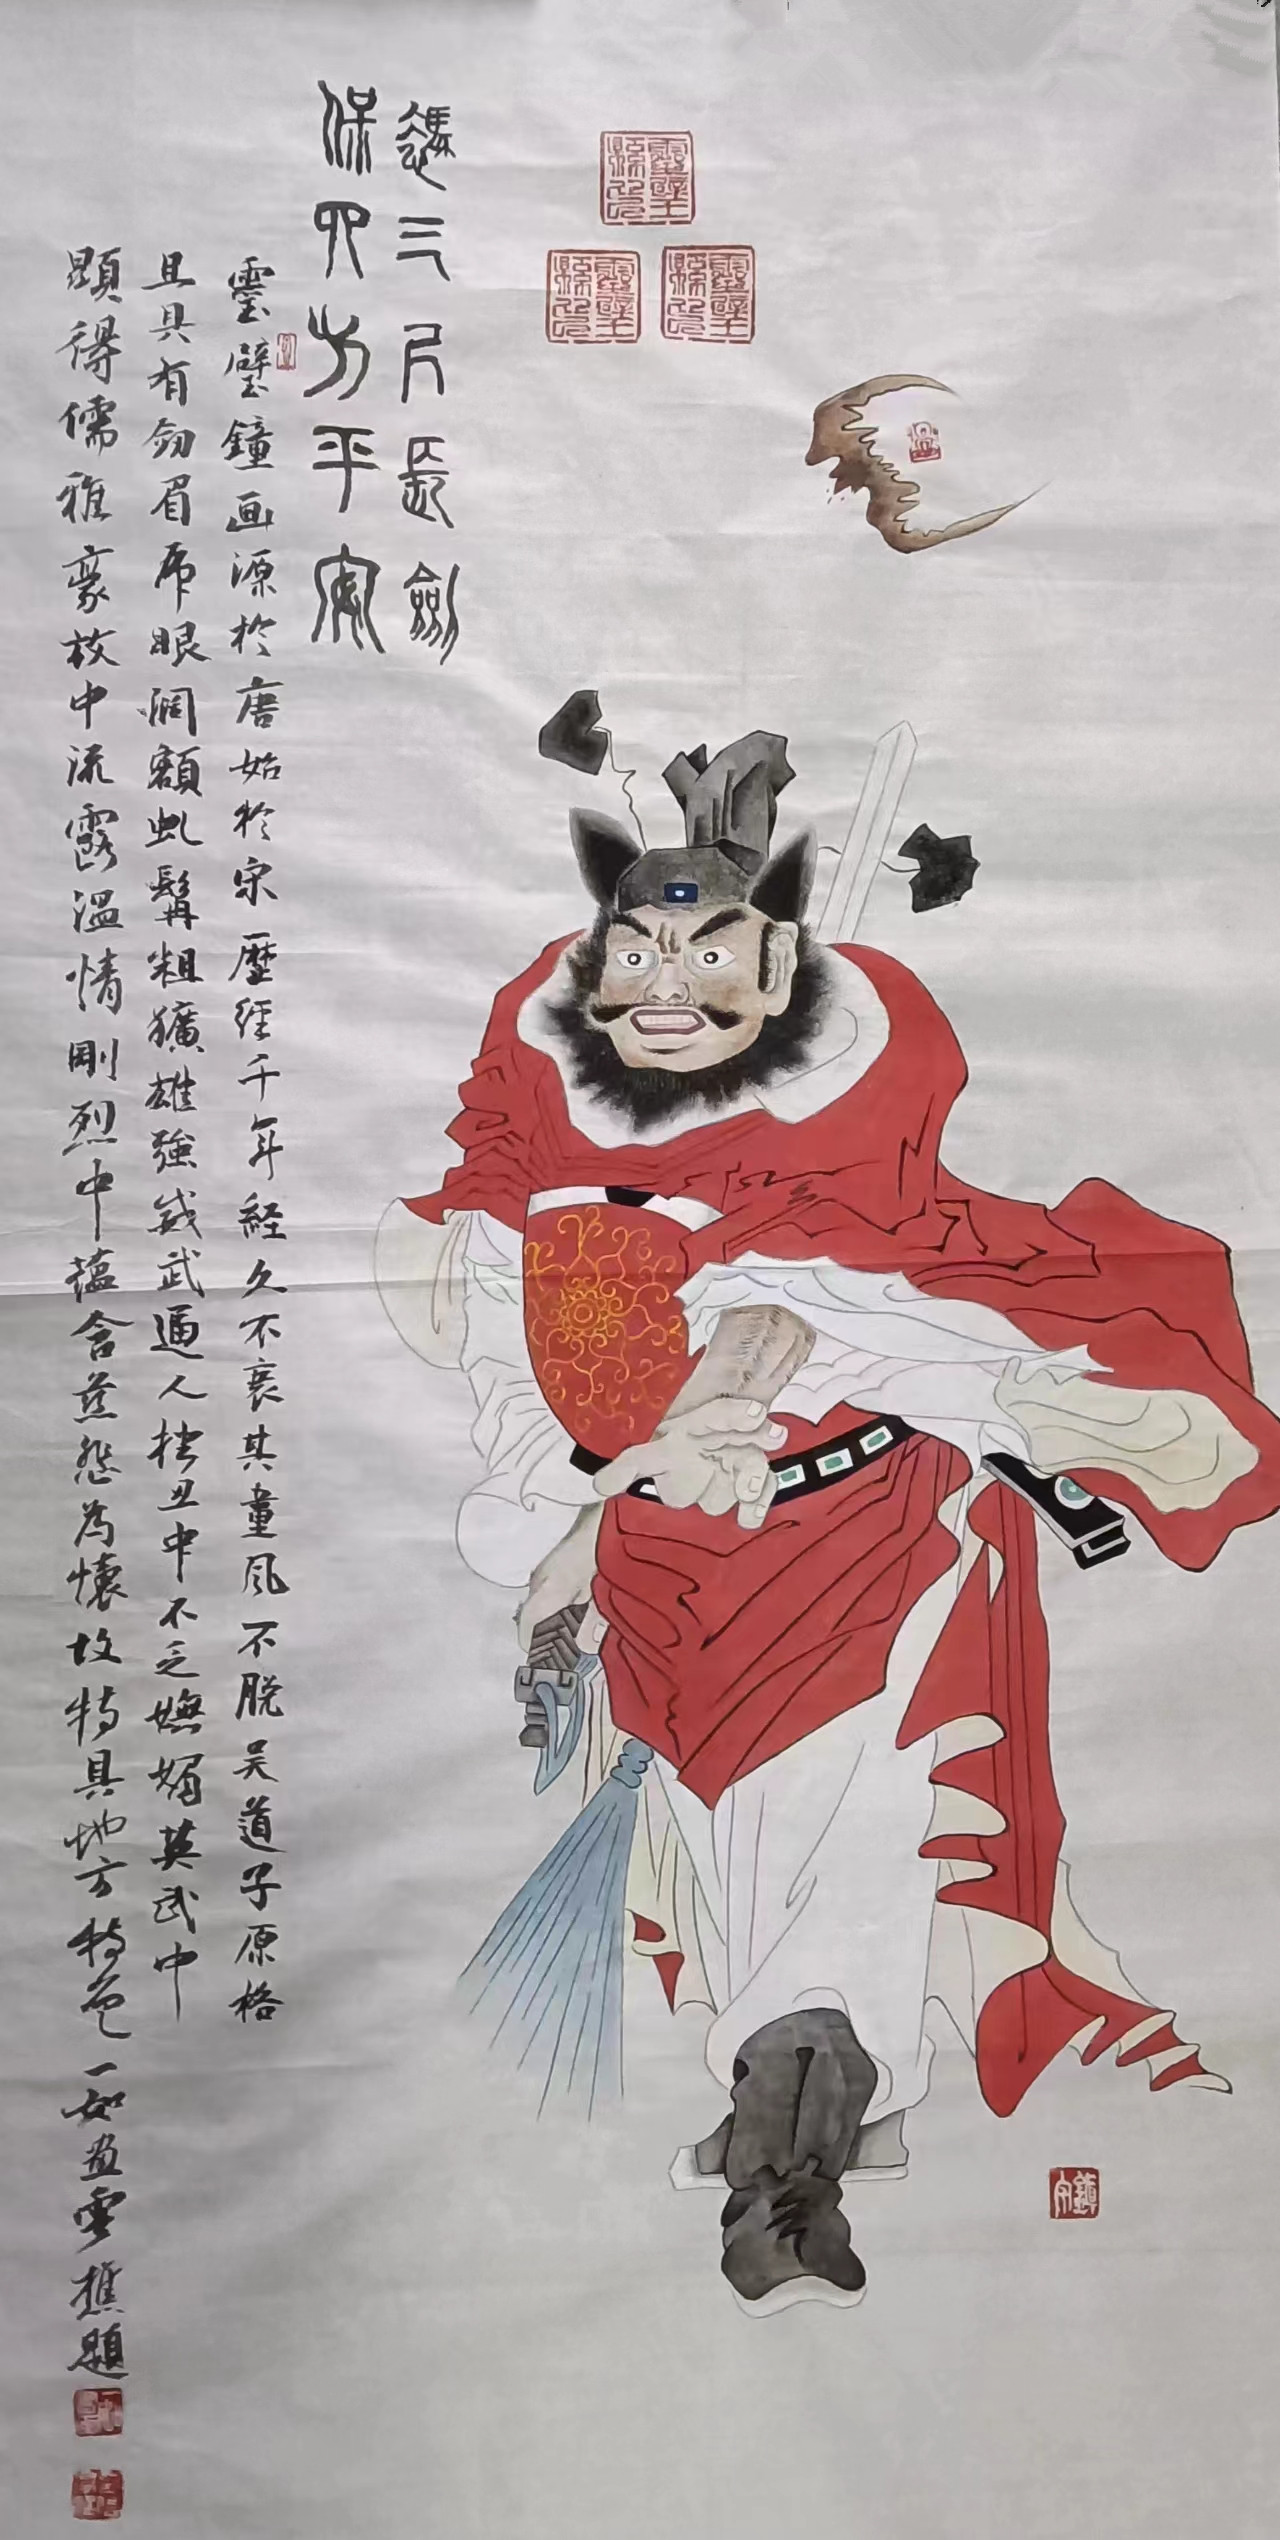 憑三尺長劍
保四方平安
靈璧鐘画源於唐始於宋歷經千年経久不衰其畫風不脱吴道子原格
且具有剑眉虎眼阔額虬髯粗獷雄強威武逼人拙丑中不乏嫵媚英武中
顕得儒雅豪放中流露温情剛烈中蘊含慈怨為懐故特具地方特色 一如画雲樵題
靈璧縣印
靈璧縣印
靈璧縣印
鎮宅